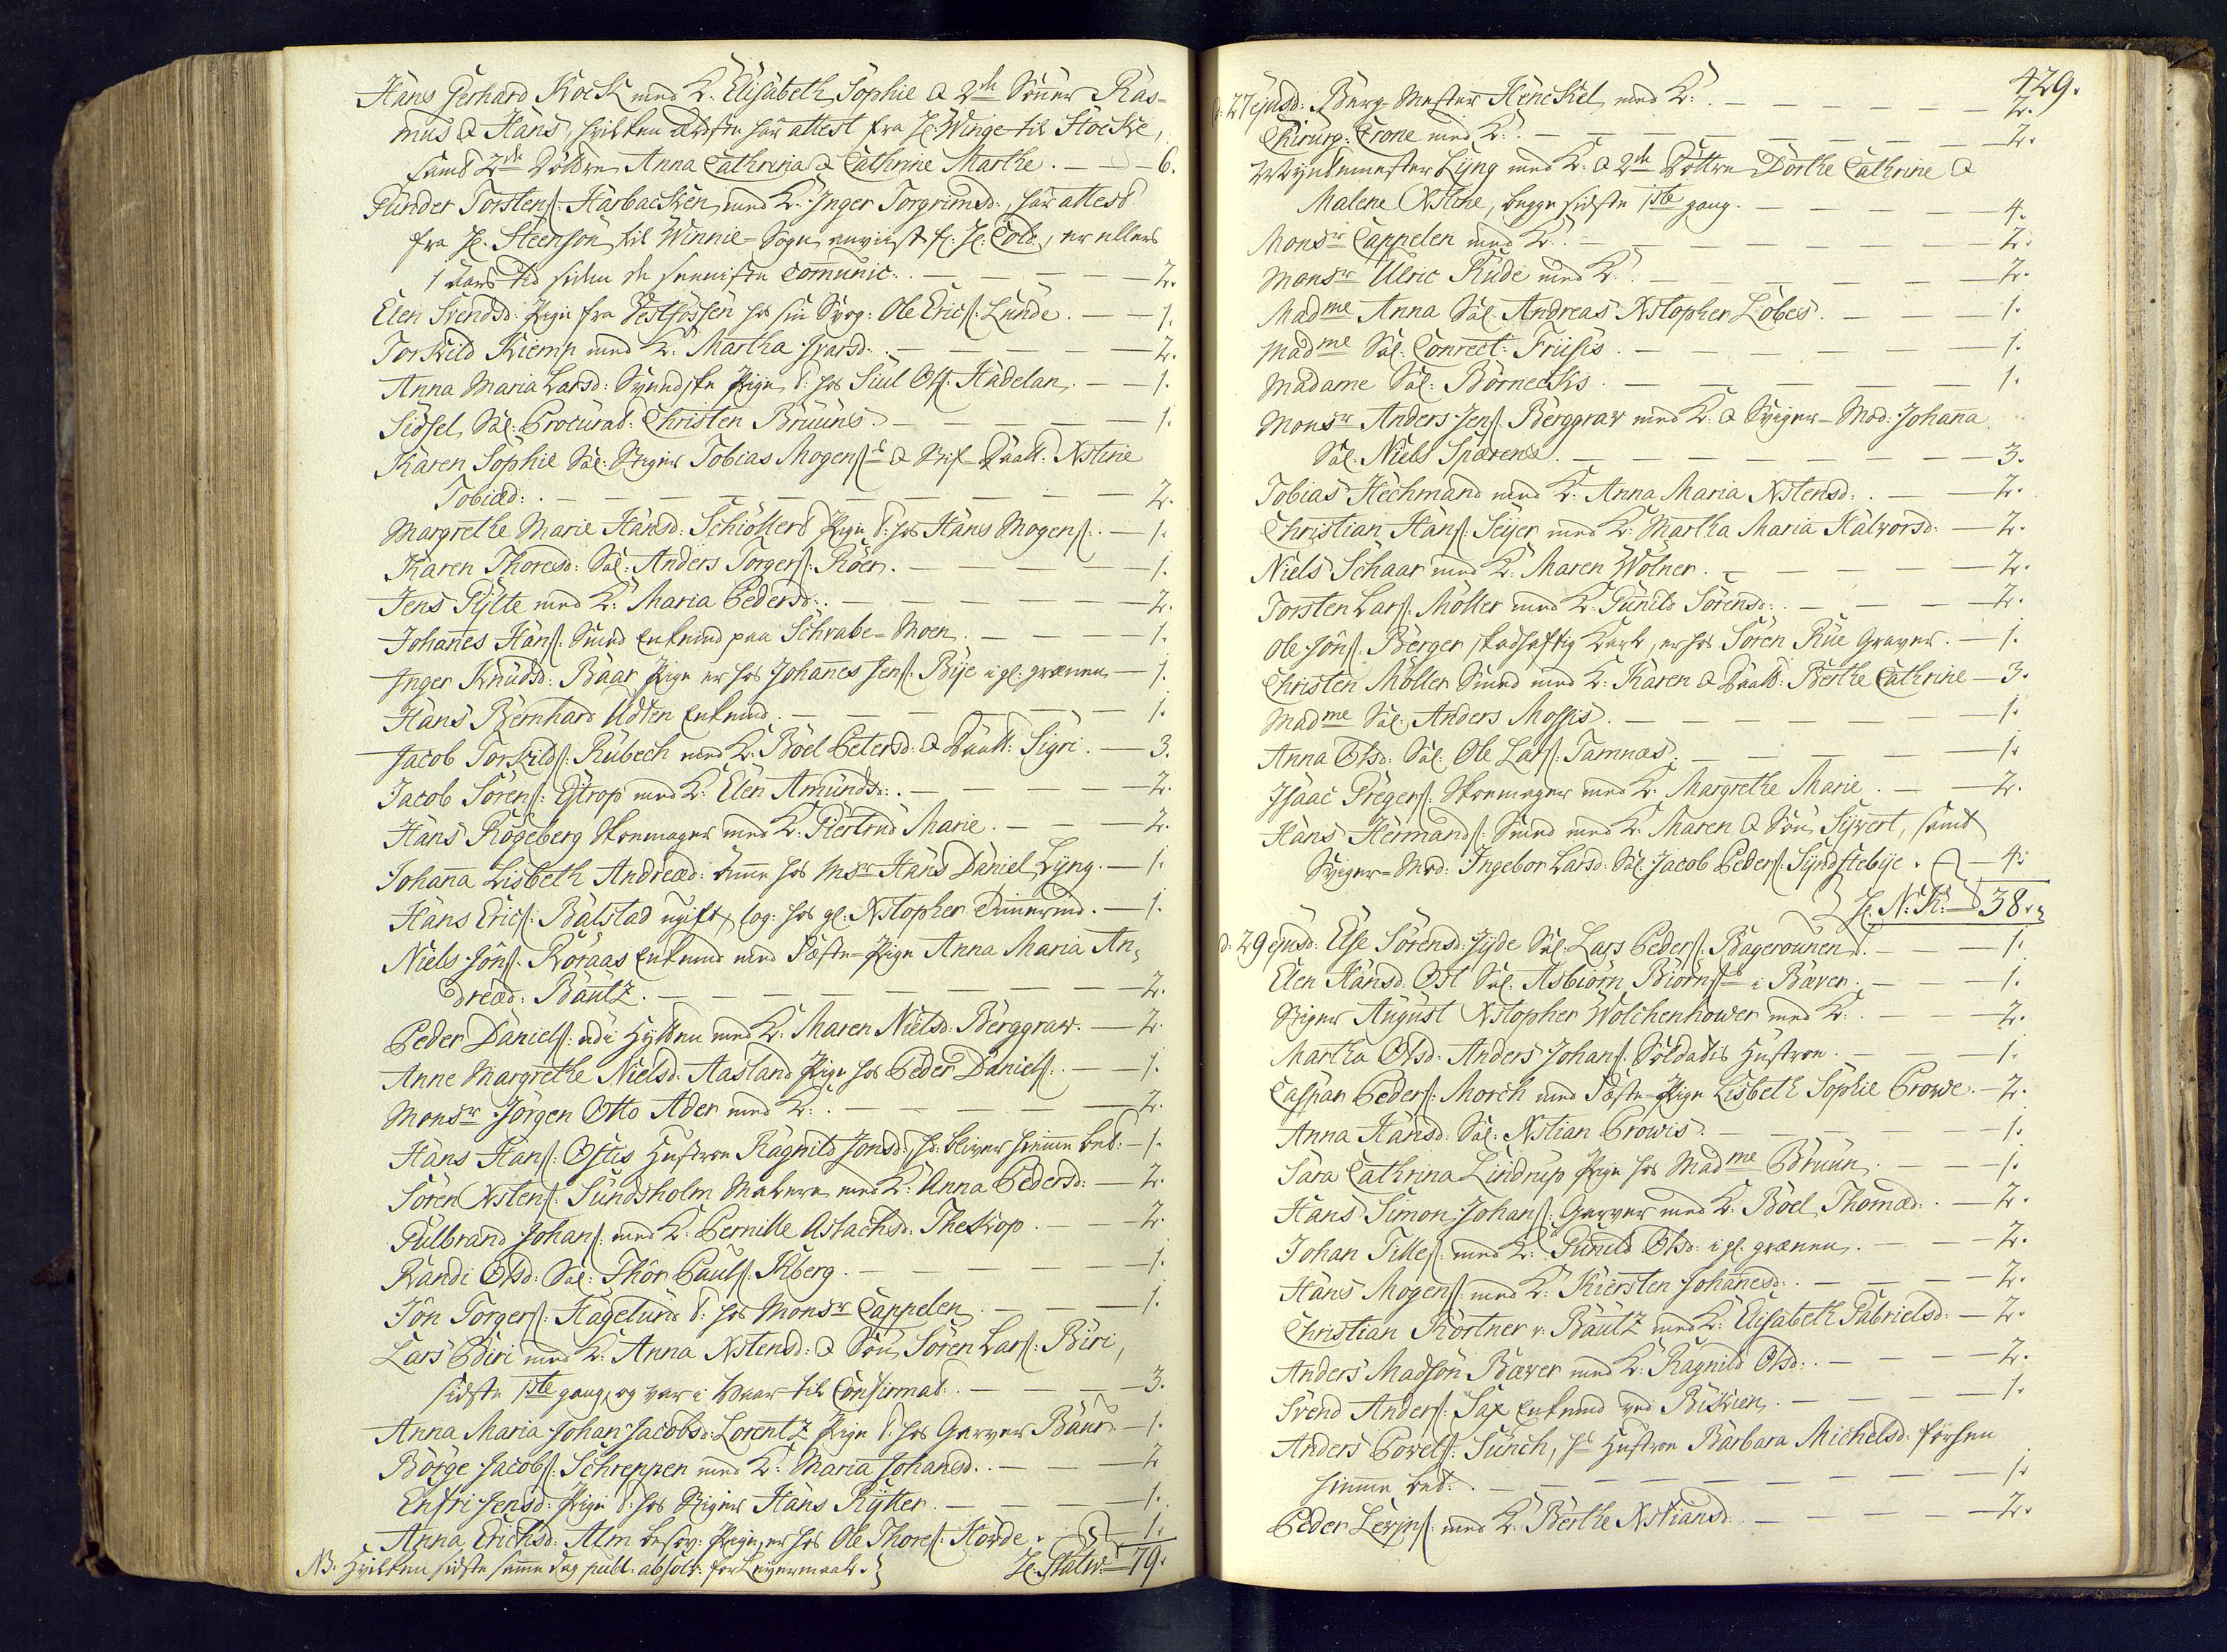 Hans Gerhard Kock med K. Elisabeth Sophie & 2de Sönner Ras=
mus & Hans, hvilken ældste har attest fra H. Winge til Hocke,
samt 2de Döttre Anna Cathrina & Cathrine Marthe. — 6.
Gunder Torstens: Harbacken med K: Inger Torgrimsd:, har attest
fra H. Steenson til Winnie-Sogn anviist f: H. Cold, er ellers
1 aars tid siden de seeniste comunic: — 2.
Elen Svendsd: Pige fra Vestfossen hos sin Svog: Ole Erics: Lunde. — 1.
Torkild Kiemp med K: Martha Ivarsd: — 2.
Anna Maria Larsd: Svendske Pige t: hos Siul Ols: Hadelan. — 1.
Sidsel Sal: Procurat: Christen Bruuns. — 1.
Karen Sophie Sal: Stigers Tobias Mogens: & Stif-Daatt: Xstine
Tobiæd: — 2.
Margrethe Marie Hansd: Schiöllers Pige t: hos Hans Mogens: — 1.
Karen Thoresd: Sal: Anders Torgers: Röer. — 1.
Jens Gylte med K: Maria Pedersd: — 2.
Johannes Hans: Smed Enkemd paa Schrabe-Moen. — 1.
Inger Knudsd: Baar Pige er hos Johannes Jens: Bye i gl: grænen — 1.
Hans Bernhard Udsen Enkemd. — 1.
Jacob Torkilds: Rubech med K: Boel Petersd: & Daatt: Sigri. — 3.
Jacob Sörens: Ystrop med K: Elen Amunds: — 2.
Hans Rögeberg Skoemager med K: Giertrud Marie. — 2.
Johanna Lisbeth Andreæd: Amme hos Msr Hans Daniel Lyng. — 1.
Hans Erics: Balstad ugift, log: hos gl: Xstopher Timmermd. — 1.
Niels Jöns: Röraas Enkemd med Fæste-Pige Anna Maria An,
dreæd: Bautz. — 2.
Peder Daniels: udi Hytten med K: Maren Nielsd: Berggraw. — 2.
Anne Margrethe Nielsd: Aasland Pige hos Peder Daniels: — 1.
Monsr Jörgen Otto Ader med K: — 2.
Hans Hans: Ostis Hustroe Ragnild Jonsd:, hd: bliver hiemme bet: — 1.
Sören Xstens: Sundsholm Mahere med K: Anna Pedersd: — 2.
Gulbrand Johans: med K: Pernille Aslachsd: Theskop. — 2.
Randi Olsd: Sal: Thor Pauls: Kberg. — 1.
Jon Torgers: Hagelund t: hos Monsr Cappelen. — 1.
Lars Biri med K: Anna Xstensd: & Sön Sören Lars: Biri,
sidste 1ste gang, og var i Vaar til Confirmat: — 3.
Anna Maria Johan Jacobsd: Lorentz Pige t: hos Garver Baur. — 1.
Börge Jacobs: Schreppen med K: Maria Johansd: — 2
Enfri Jensd: Pige t: hos Stigers Hans Rytter. — 1.
Anna Erichsd: Alm besov: Pige, er hos Ole Thores: Horde. — 1.
NB: Hvilken sidste samme dag publ: absolv: for Leyermaals. H. Statw: — 79.
429.
d: 27 ejusd: Burg-Mester Henckel med K: — 2.
Chirurg: Crone med K: — 2.
Myntemester Lyng med K: & 2de Döttre Dorthe Cathrine &
Malene Xstine, begge sidste 1ste gang. — 4.
Monsr Cappelen med K: — 2.
Monsr Ulric Rude med K: — 2.
Madme Anna Sal: Andreas Xstopher Löbes. — 1.
Madme Sal: Conrect: Friisis. — 1.
Madame Sal: Börnecks. — 1.
Monsr Anders Jens: Berggraw med K: & Sviger-Mod: Johana
Sal: Niels Sparens. — 3.
Tobias Hechmand med K: Anna Maria Xstensd: — 2.
Christian Hans: Seyer med K: Martha Maria Halvorsd: — 2.
Niels Schaar med K: Maren Wolner. — 2.
Torsten Lars: Möller med K: Gunild Sörensd: — 2.
Ole Jons: Berger skadhaftig Karl, er hos Sören Rüe Graver. — 1.
Christen Möller Smed med K: Karen & Daatt: Berthe Cathrine — 3.
Madme Sal: Anders Mossis. — 1.
Anna Olsd: Sal: Ole Lars: Tamnas. — 1.
Isaac Gregers: Skoemager med K: Margrethe Marie. — 2.
Hans Hermands: Smed med K: Maren & Sön Sywert, samt
Sviger-Mod: Ingebor Larsd: Sal: Jacob Peders: Syndstebye. — 4.
H. N: K: — 38.
d. 29 ejusd: Else Sörensd: Jyde Sal: Lars Peders: Bageroünen. — 1.
Elen Hansd: Ost Sal: Asbiörn Biörns: i Bæver. — 1.
Stiger August Xstopher Wolchenhower med K: — 2.
Martha Olsd: Anders Johans: Soldatis Hustroe. — 1.
Caspar Peders: Morch med Fæste-Pige Lisbeth Sophie Prowe. — 2.
Anna Hansd: Sal: Xstian Prowis. — 1.
Sara Cathrina Lindrup Pige hos Madme Bruun. — 1.
Hans Simon Johans: Garver med K: Boel Thomæd: — 2
Johan Tilles: med K: Gunild Olsd: i gl: grænen. — 2.
Hans Mogens: med K: Kiersten Johanesd: — 2.
Christian Körtner v: Bautz med K: Elisabeth Gabrielsd: — 2.
Anders Madson Bæver med K: Ragnild Olsd: — 2.
Svend Anders: Sax Enkemd ved Biskien. — 1.
Anders Powels: Sunch, hs Hustroe Barbara Michelsd: forhen
hiemme bet: — 1.
Peder Levins: med K: Berthe Xstiansd: — 2.